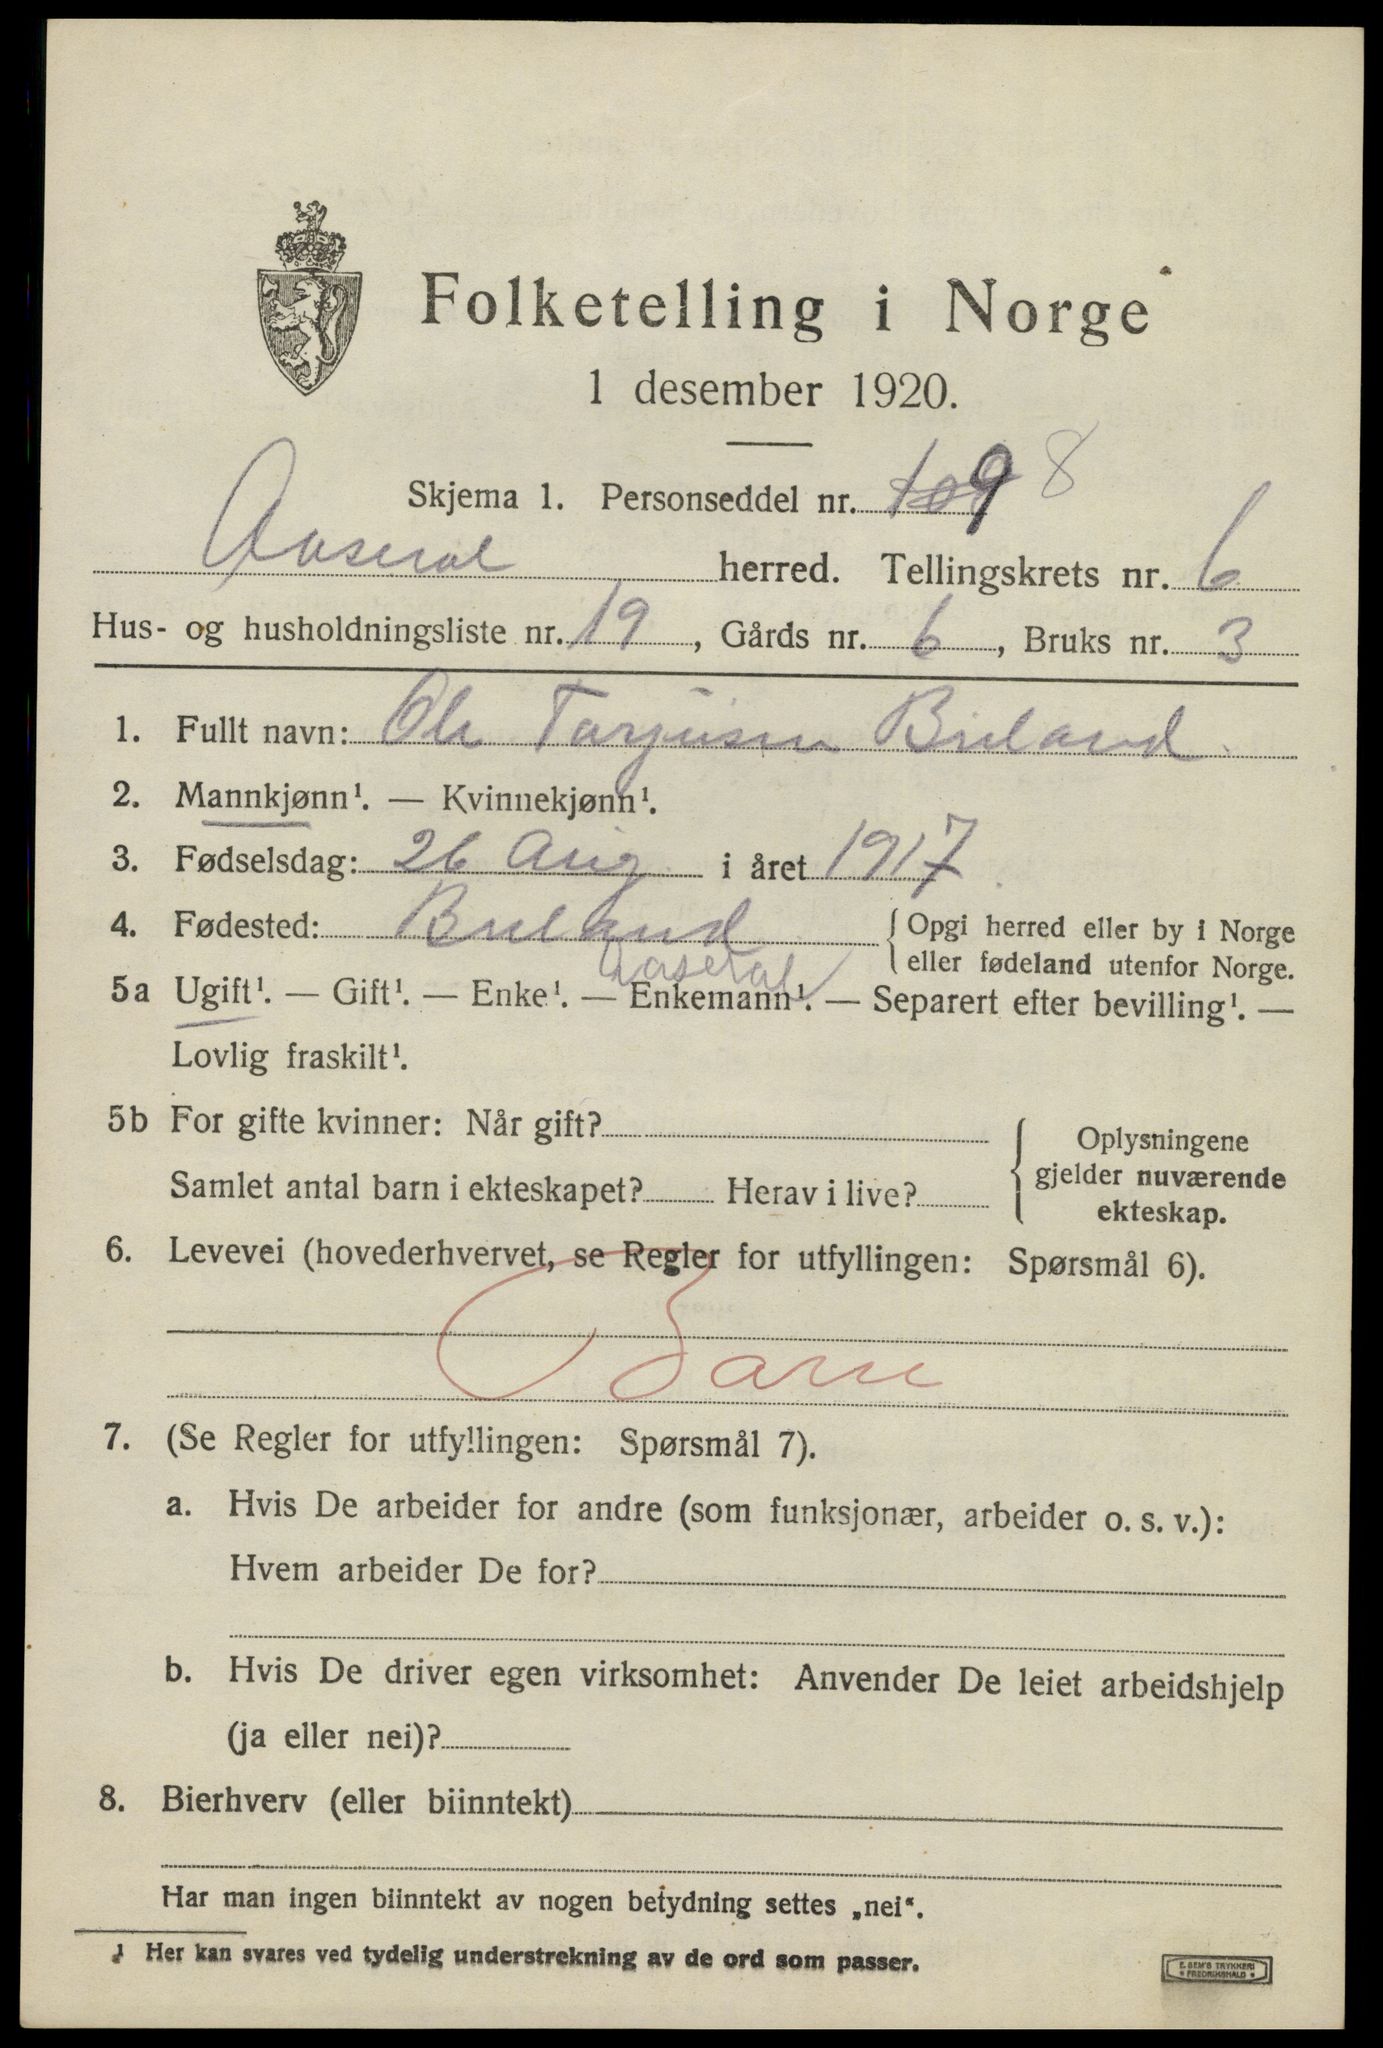 Folketelling i Norge
1 desember 1920.
Skjema 1. Personseddel nr. 98
Aaseral herred. Tellingskrets nr. 6
Hus- og husholdningsliste nr. 19, Gårds nr. 6, Bruks nr. 3
1. Fullt navn: Ole Tarjusen Breland
2. Mannkjønn¹. — Kvinnekjønn¹.
3. Fødselsdag: 26 Aug i året 1917
4. Fødested: Breland { Opgi herred eller by i Norge
eller fødeland utenfor Norge.
Aaseral
5a Ugift¹. — Gift¹. — Enke¹. — Enkemann¹. — Separert efter bevilling¹. —
Lovlig fraskilt¹.
5b For gifte kvinner: Når gift?
Samlet antal barn i ekteskapet? Herav i live?
{ Oplysningene
gjelder nuværende
ekteskap.
6. Levevei (hovederhvervet, se Regler for utfyllingen: Spørsmål 6).
Barn
7. (Se Regler for utfyllingen: Spørsmål 7).
a. Hvis De arbeider for andre (som funksjonær, arbeider o. s. v.):
Hvem arbeider De for?
b. Hvis De driver egen virksomhet: Anvender De leiet arbeidshjelp
(ja eller nei)?
8. Bierhverv (eller biinntekt)
Har man ingen biinntekt av nogen betydning settes „nei“.
¹ Her kan svares ved tydelig understrekning av de ord som passer.
E. SEM'S TRYKKERI
FREDRIKSHALD